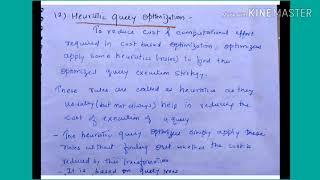 Made with
KINEMASTER
12) Heuristic Query Optimization -
To reduce cost & computational effort
required in cost based optimization, optimizer
apply some heuristics (rules) to find the
optimized query execution strategy.
These rules are called as heuristic as they
usually (but not always) help in reducing the
cost of execution of a query
- The heuristic query optimizer simply apply these
rules without finding out whether the cost is
reduced by this transformation
- It is based on query